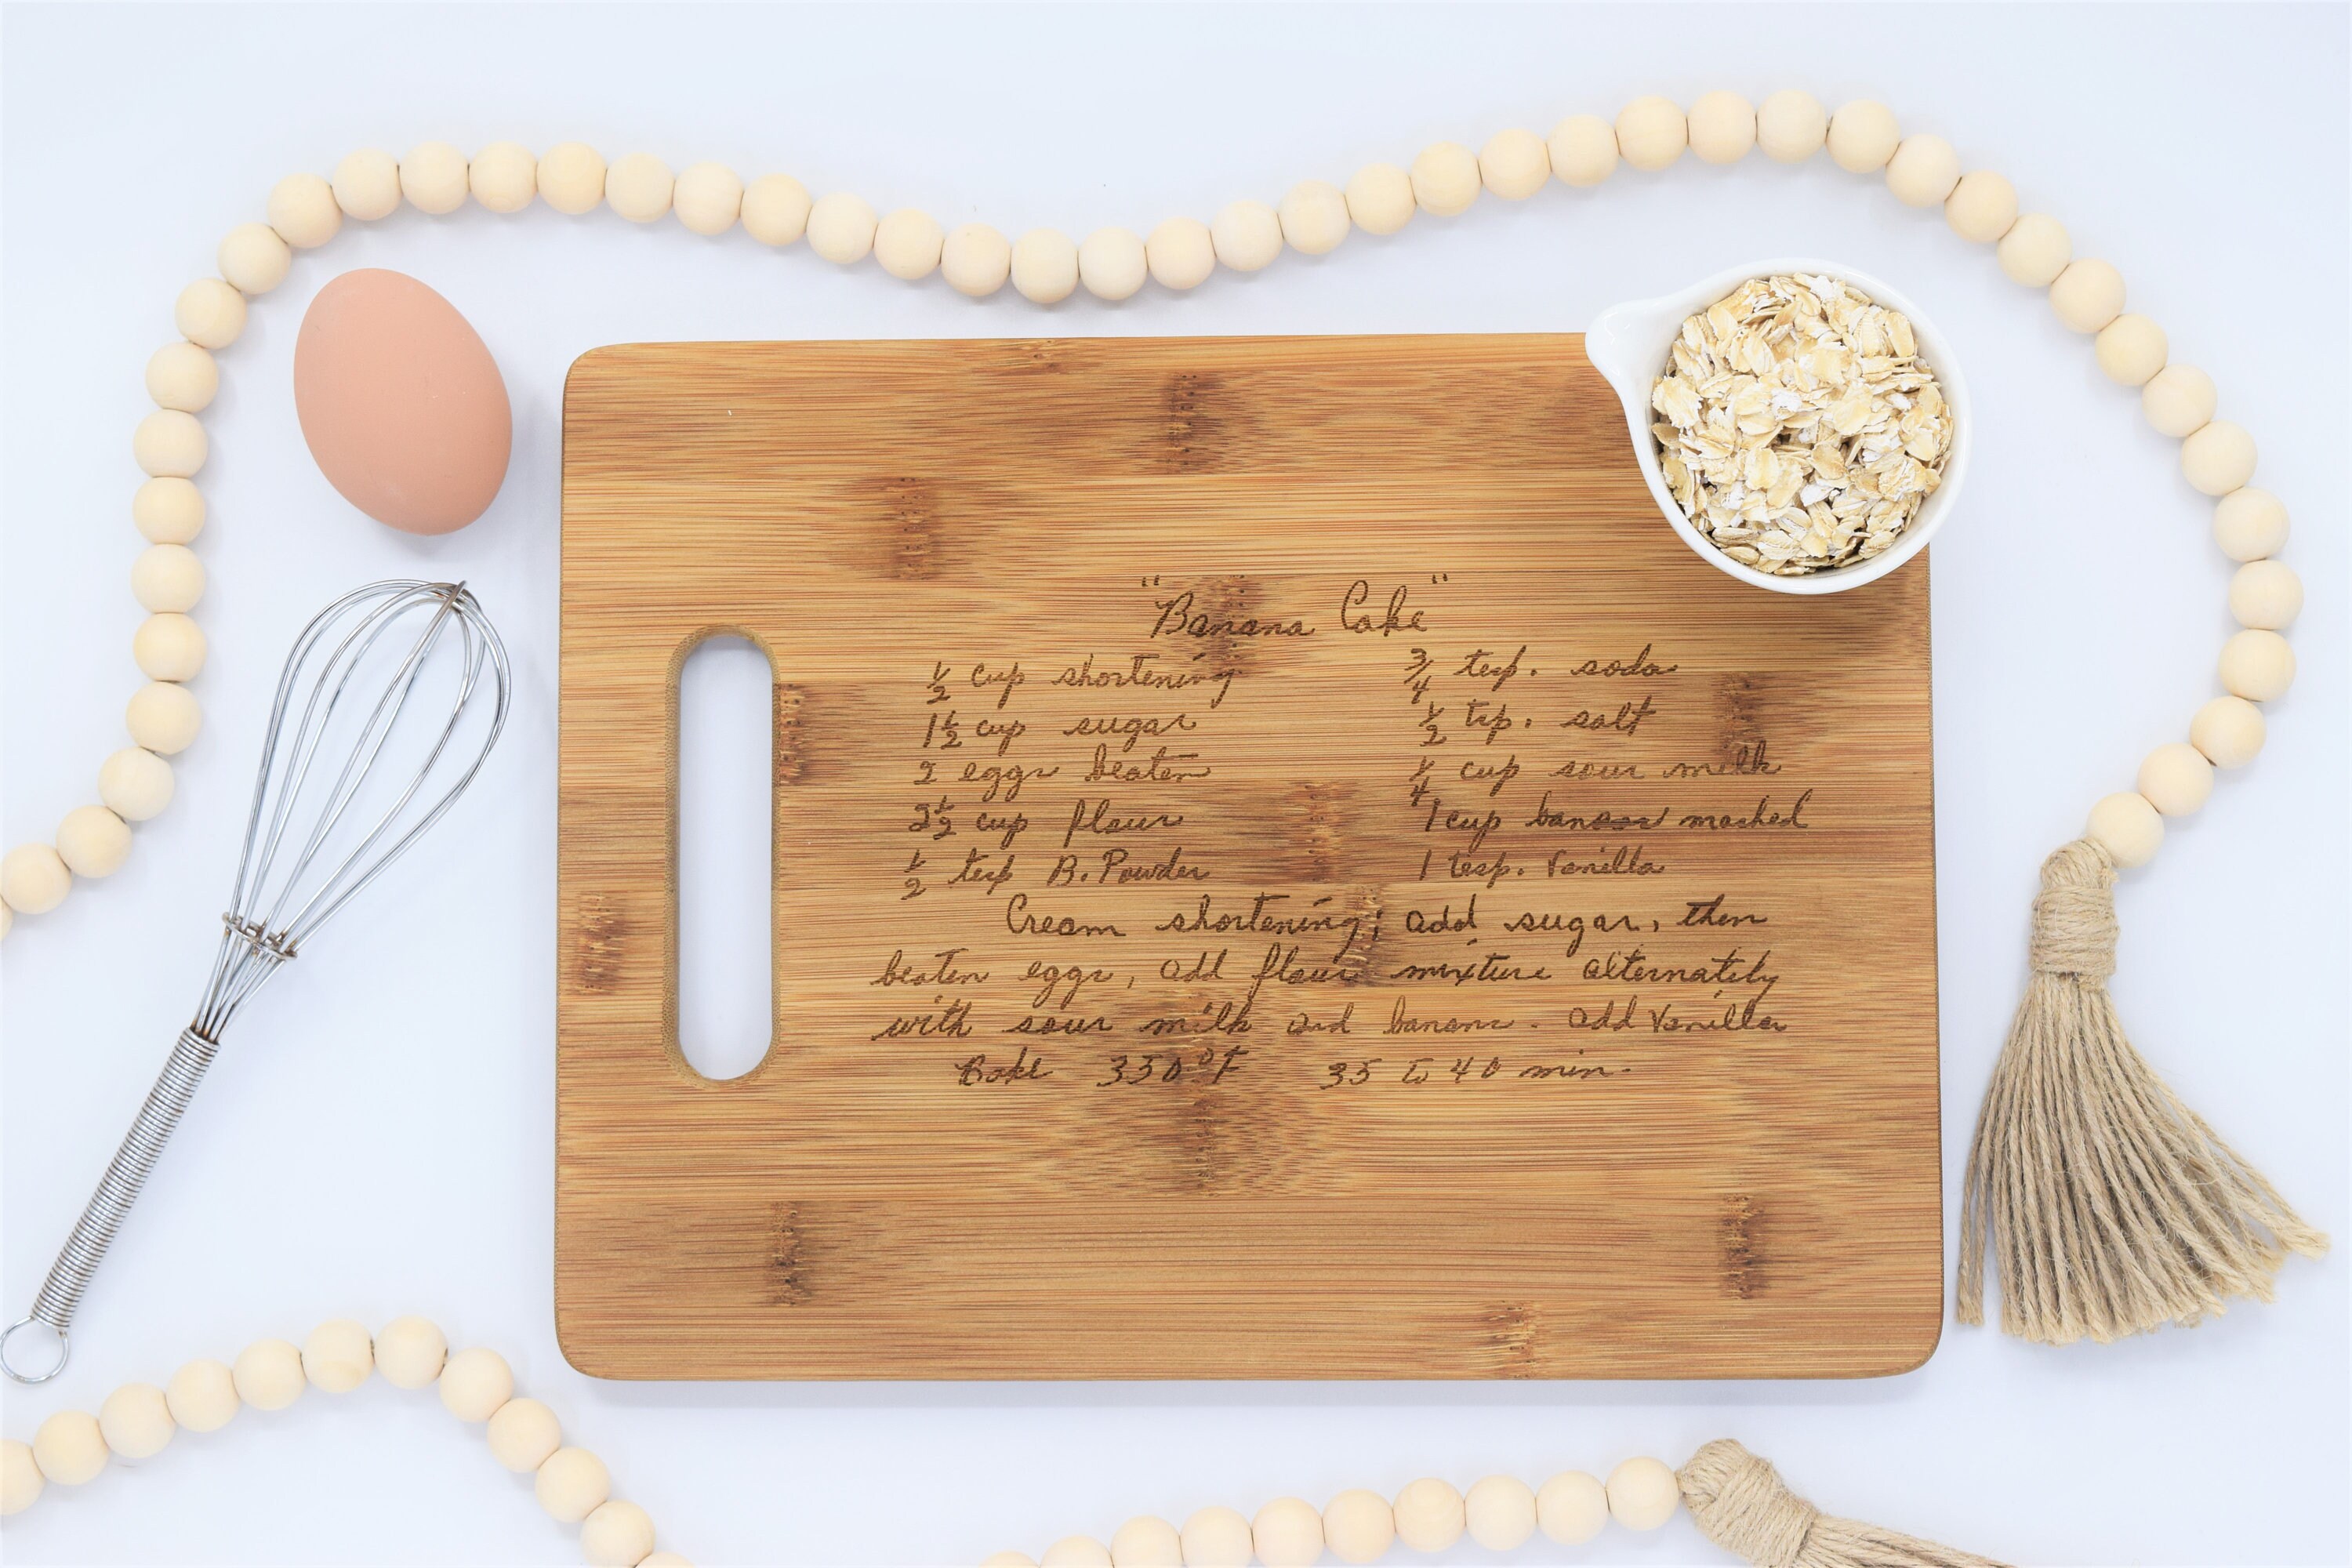 "Banana Cake"
½ cup shortening
1½ cup sugar
2 eggs beaten
2½ cup flour
½ tesp B. Powder
¾ tesp. soda
½ tsp. salt
¼ cup sour milk
1 cup mashed
1 tesp. Vanilla
Cream shortening; add sugar, then
beaten eggs, add flour mixture alternately
with sour milk and banana. add Vanilla
Bake 350°F 35 to 40 min.